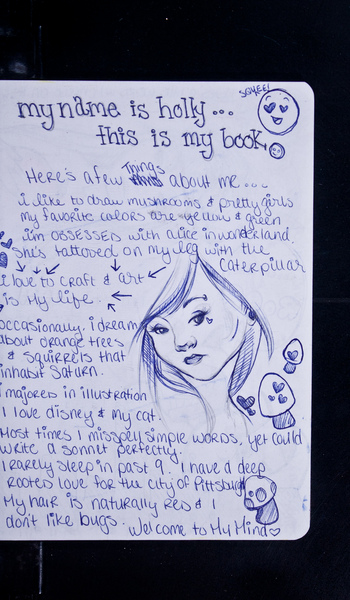 SQUEE!
my name is holly...
this is my book.
Things
Here's a few about me...
i like to draw mushrooms & pretty girls
my favorite colors are yellow & green
i'm OBSESSED with alice in wonderland.
She's tattooed on my leg with the
caterpillar
i love to craft & art
is my life.
occasionally. i dream
about orange trees
& Squirrels that
inhabit Saturn.
i majored in illustration
I love disney & my cat.
Most times I misspell simple words, yet could
write a sonnet perfectly.
I rarely sleep in past 9. I have a deep
rooted love for the city of Pittsburgh
My hair is naturally red & I
don't like bugs. Welcome to My Mind